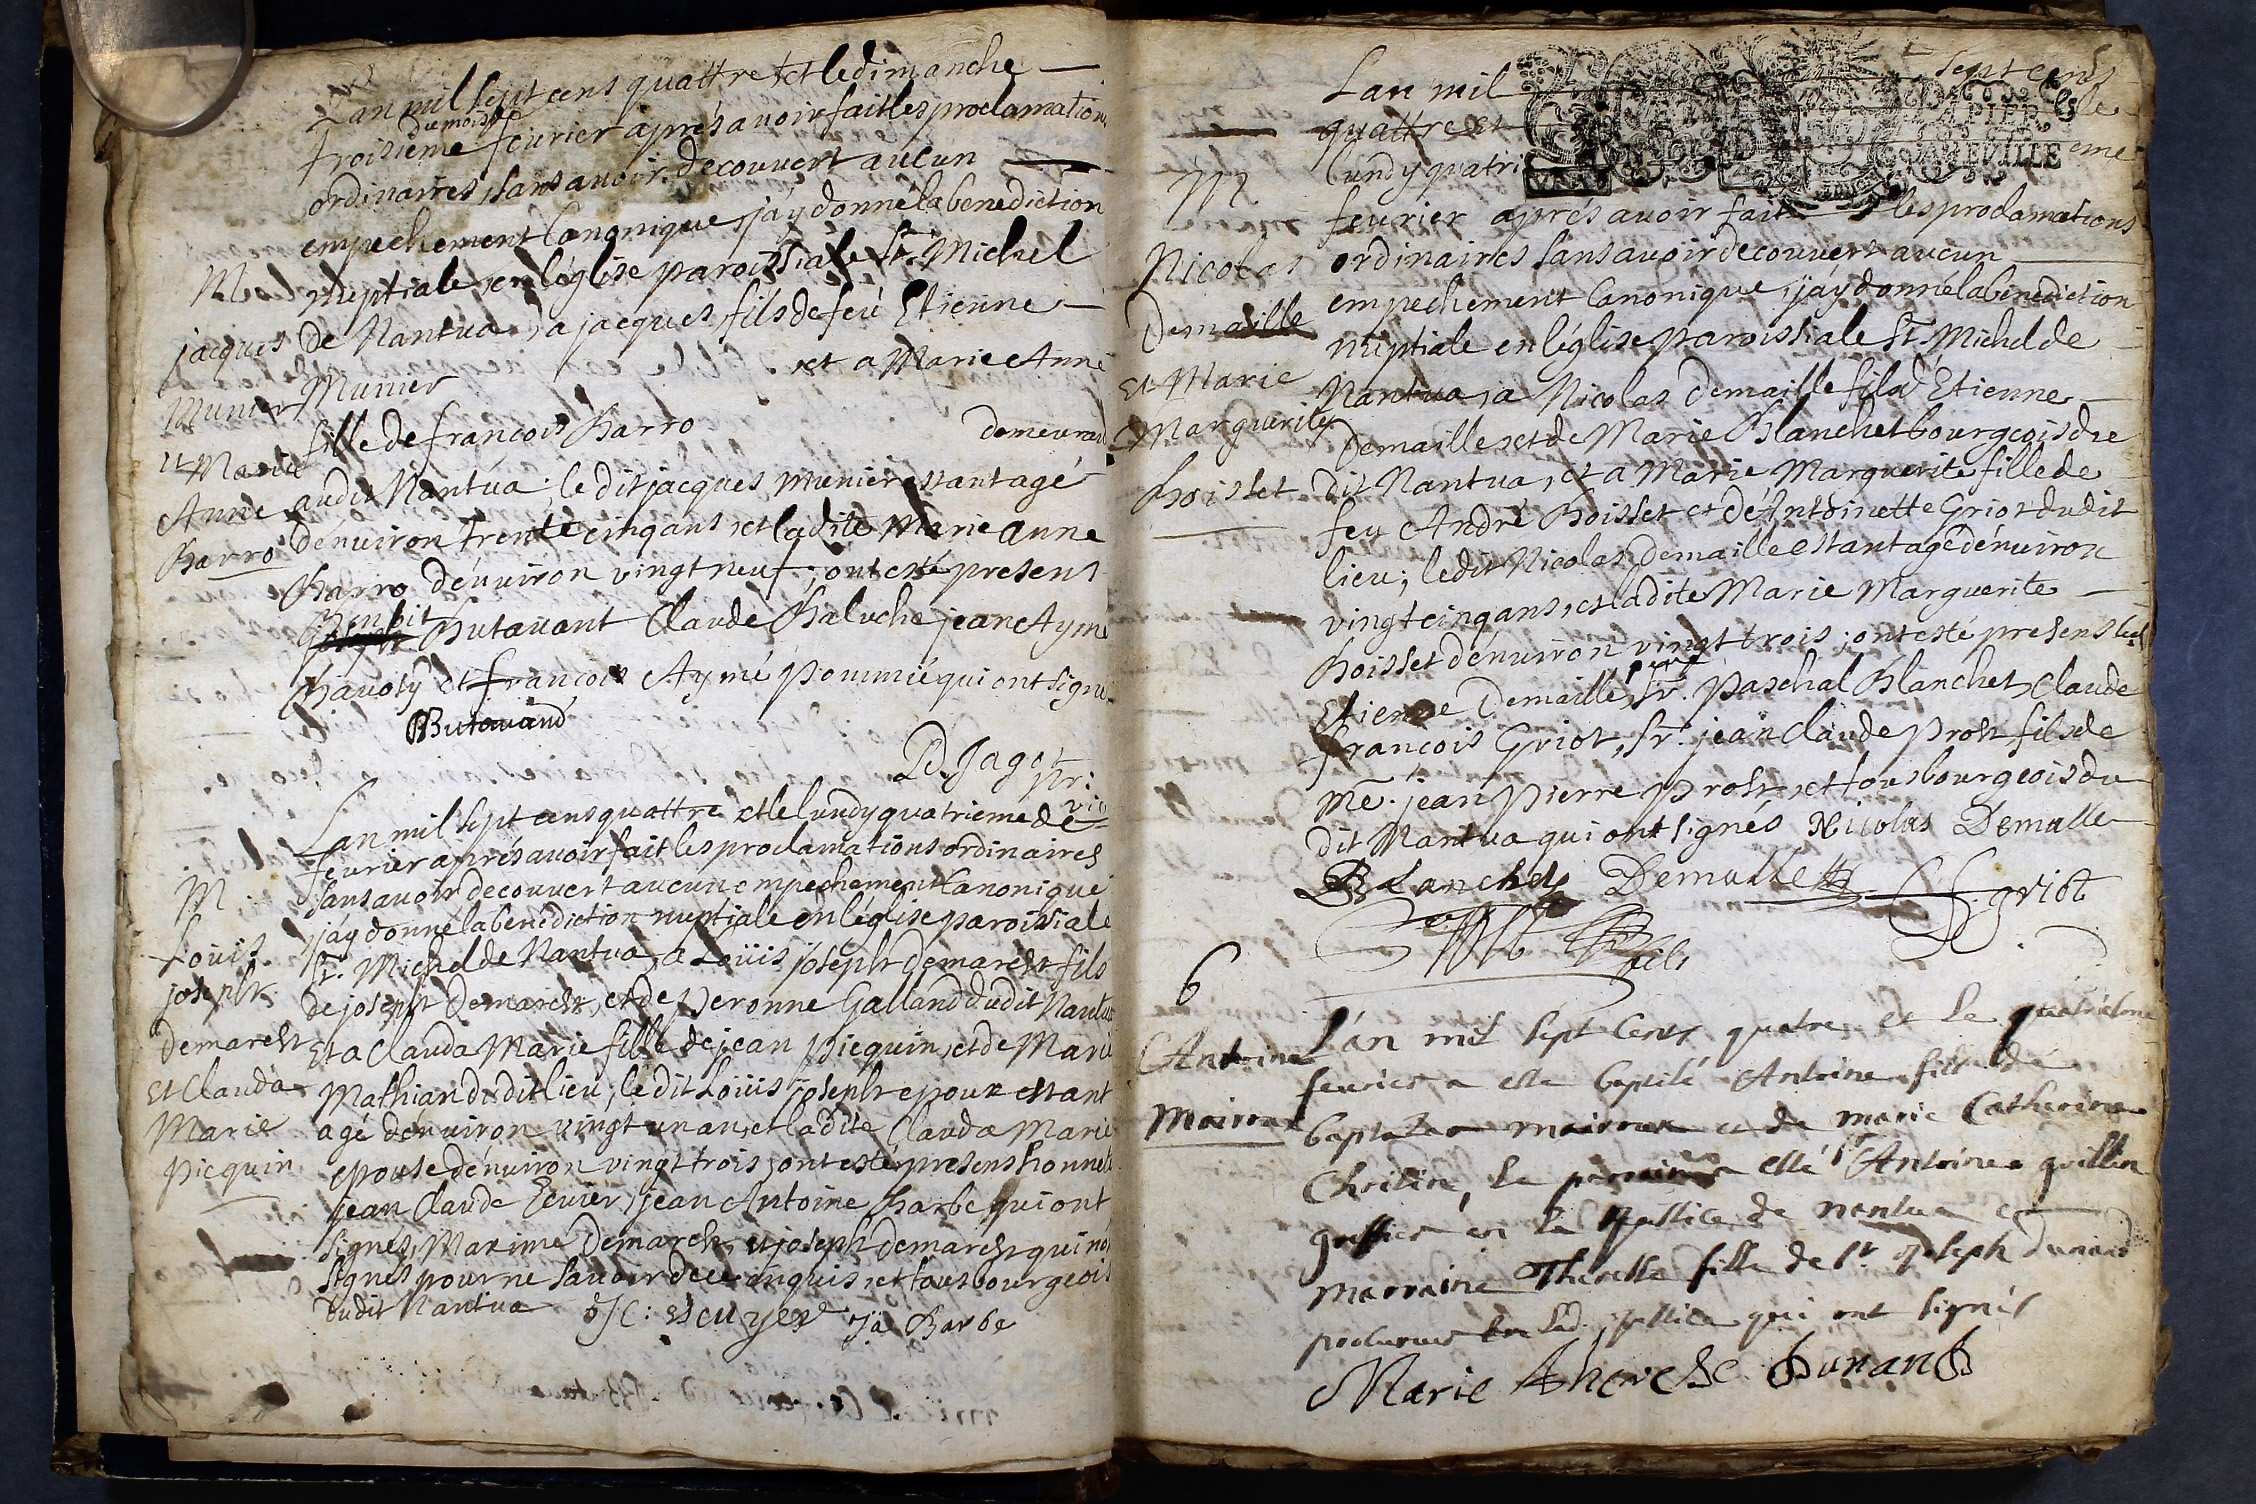 Lan mil sept cens quattre et le dimanche
troisieme du mois de fevrier aprés avoir fait les proclamations
ordinaires, sans avoir decouvert aucun
empechement Canonique, j'ay donné la benediction
nuptiale en léglise paroissiale St. Michel
de Nantua, a jacques fils de feu Etienne
Munier et a Marie Anne
fille de françois Barro demeurant
audit Nantua; le dit jacques Munier estant agé
dénviron trente cinq ans, et la dite Marie Anne
Barro dénviron vingt neuf; ont esté presens
Benoit Butavant Claude Baluche jean Aymé
Bavoly et françois Aymé Pommié qui ont signé
Butavand
D. Jagot pr:
vic
M
jacques
Munier
et Marie
Anne
Barro
Lan mil sept cens quattre et le lundy quatrieme de
fevrier aprés avoir fait les proclamations ordinaires
sans avoir decouvert aucun empechement Canonique
j'ay donné la benediction nuptiale en léglise paroissiale
St. Michel de Nantua, a Loüis joseph Demarest fils
de joseph Demarest, et de Peronne Galland dudit Nantua
Et a Clauda Marie fille de jean Picquin, et de Marie
Mathian dudit lieu; le dit Loüis joseph epoux estant
agé dénviron vingt un an, et la dite Clauda Marie
epouse dénviron vingt trois, ont esté presens honnete
jean Claude Ecuier, jean Antoine Barbe qui ont
signés, Maxime Demarest, et joseph Demarest qui nont
signés pour ne savoir de ce enquis, et tous bourgeois
dudit Nantua JC: Escuyer JA Barbe
M
Louis
joseph
Demarest
Et Clauda
Marie
Picquin
Lan mil sept cens
quattre et le
lundy quatrieme
fevrier aprés avoir fait les proclamations
ordinaires sans avoir decouvert aucun
empechement Canonique, j'ay donné la benediction
nuptiale en léglise paroissiale St. Michel de
Nantua, a Nicolas Demaille fils d'Etienne
Demaille, et de Marie Blanchet bourgeois du
dit Nantua, et a Marie Marguerite fille de
feu André Boisset et de Anthoinette Griot dudit
lieu; ledit Nicolas Demaille estant agé dénviron
vingt cinq ans, et la dite Marie Marguerite
Boisset dénviron vingt trois; ont esté presens led
Etienne Demaille pere, Sr. Paschal Blanchet, Claude
françois Griot, Sr. jean Claude Prost fils de
Me. jean Pierre Prost, et tous bourgeois du
dit Nantua qui ont signés Nicolas Demalle
Blanchet Demalle C f. griot
fils
PAPIER
VILLE
M
Nicolas
Demaille
Et Marie
Marguerite
Boisset
6
Antoine
Moiroux
L'an mil sept Cents quatre et le quatriesme
fevrier a esté baptisé Antoine fils de
baptiste moiroux et de marie Catherine
Christin, le parrain a esté Sr Antoine grillin
greffier en la justice de nantua et
marraine Theresse fille de Sr joseph Dunand
procureur en lad. justice qui ont signés
Marie Therese Dunand